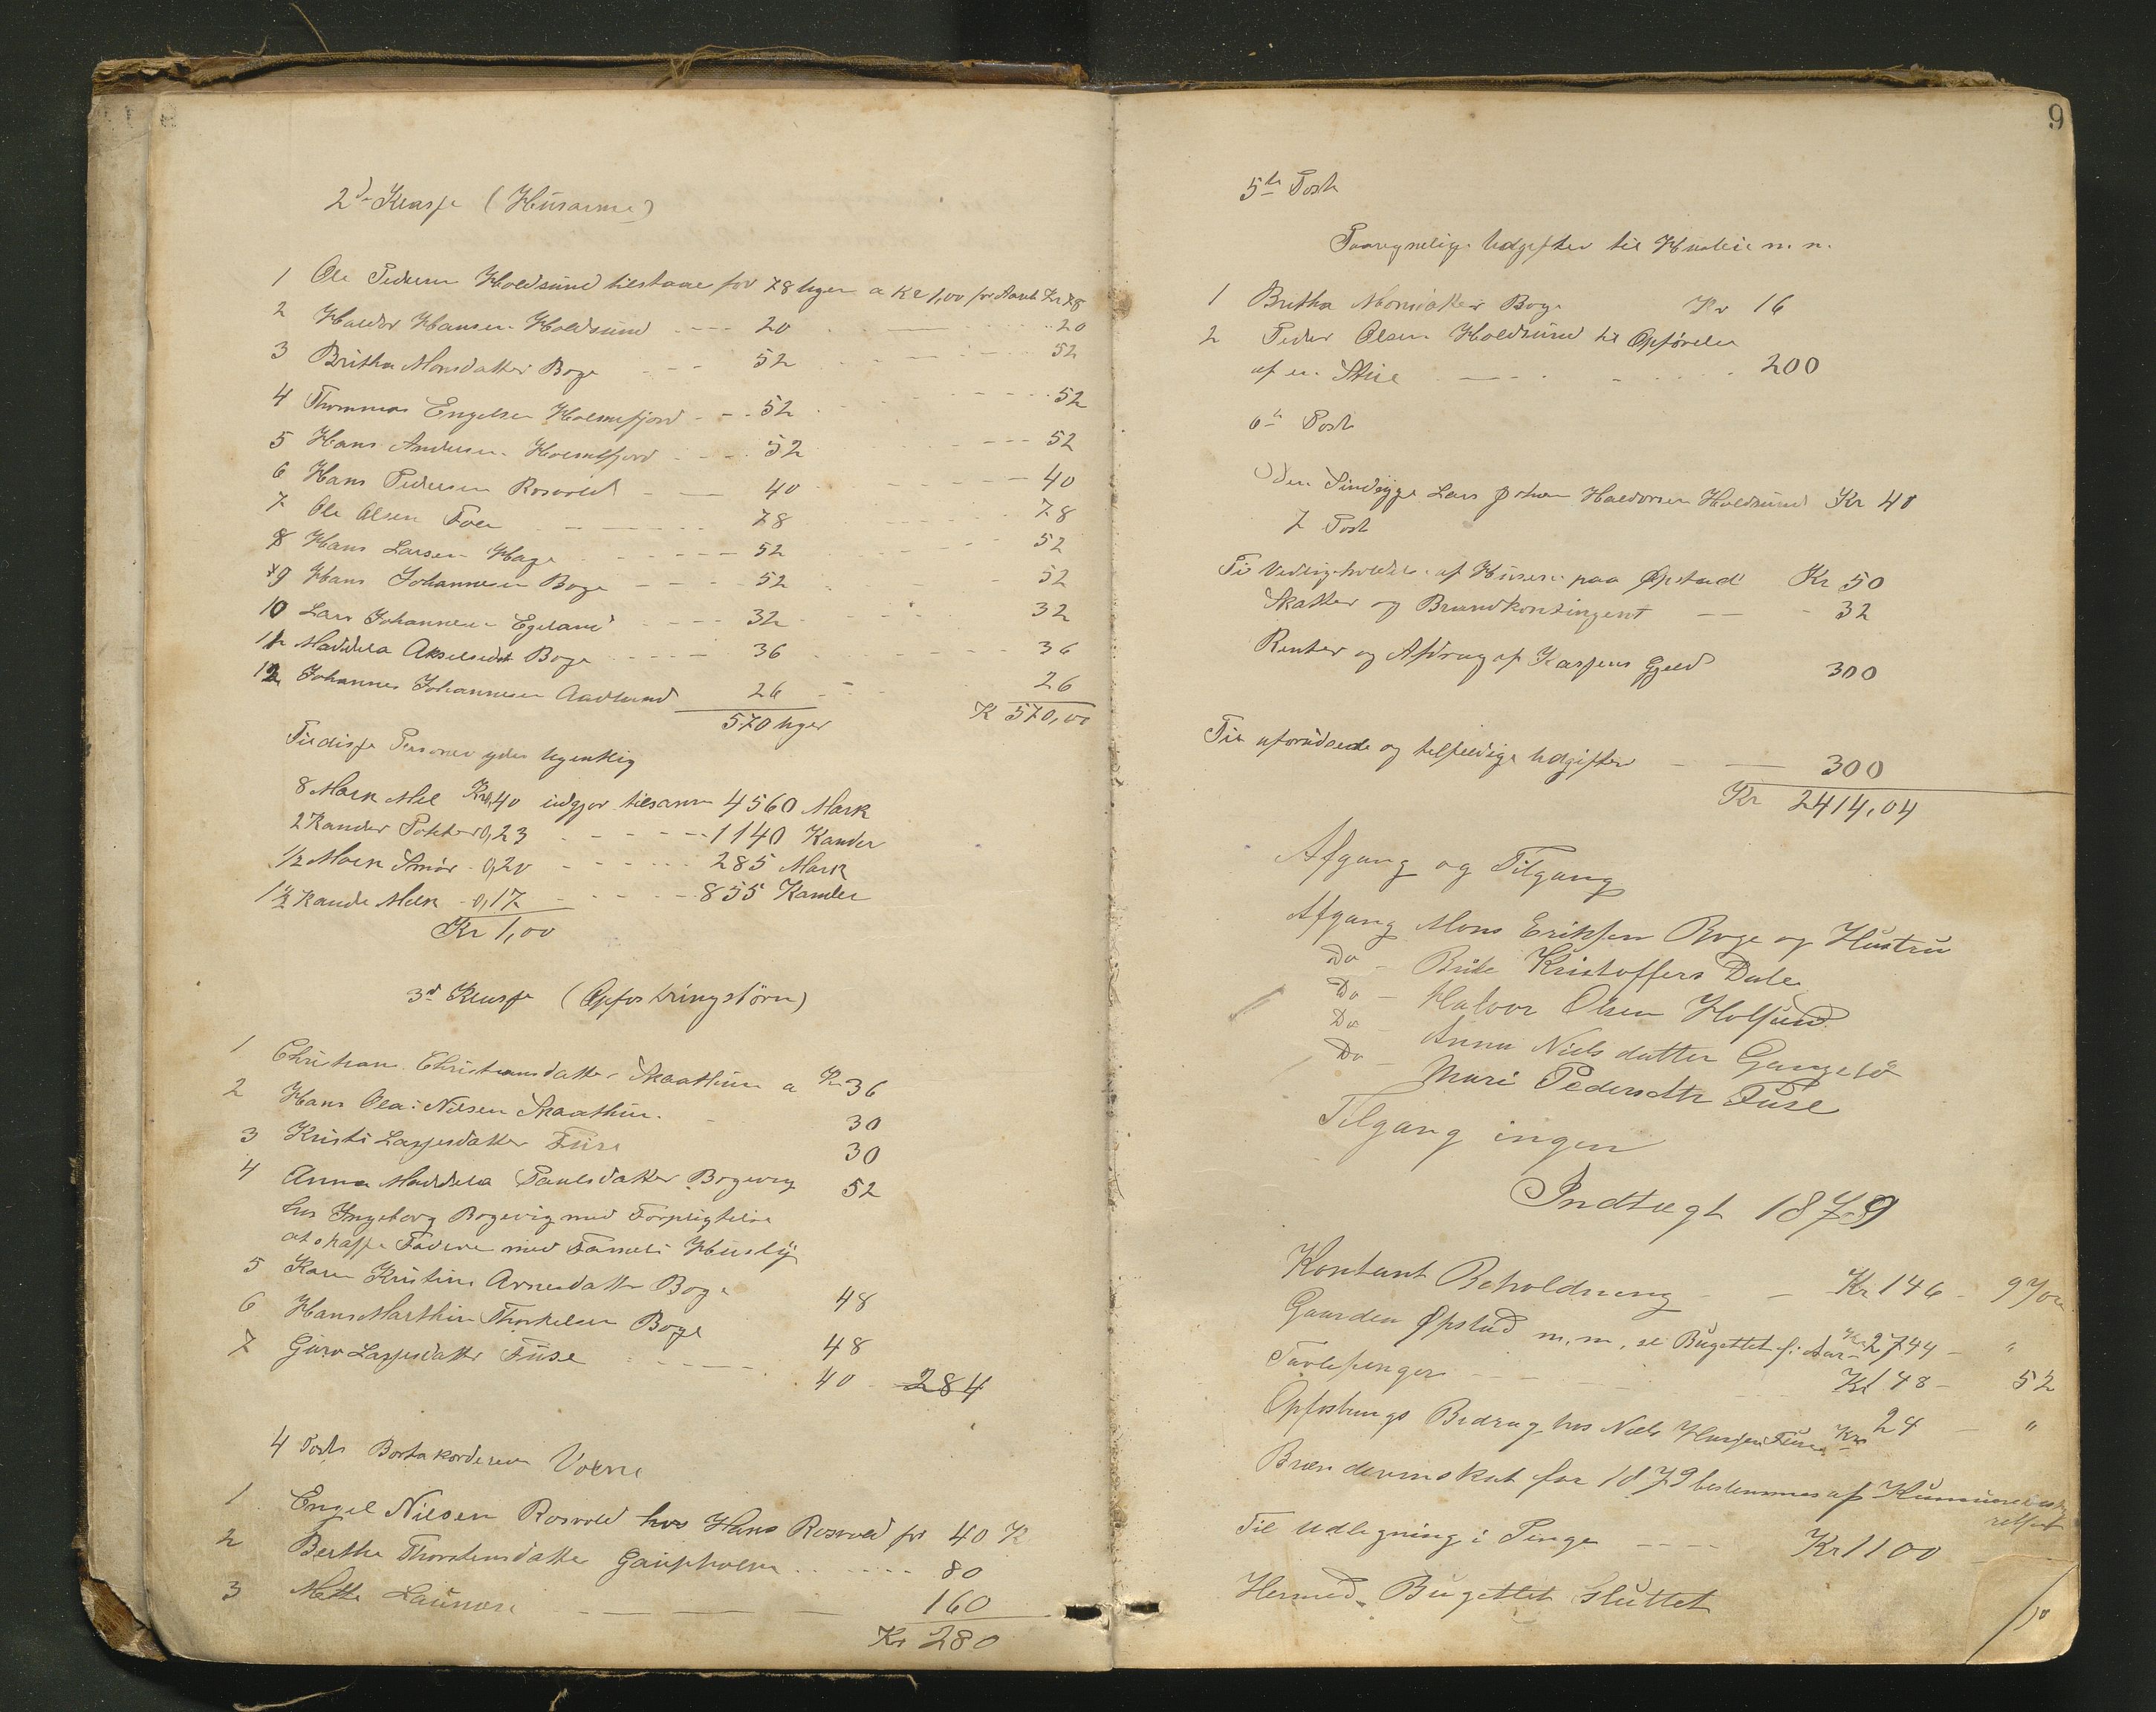 2d Klasse (Husarme)
1 Ole Pedersen Holdsund tilstaaes for 78 Uger a Kr 1,00 Kr 78
2 Haldor Hansen Holdsund 20 20
3 Britha Monsdatter Boge 52 52
4 Thommas Engelsen Holmefjord 52 52
5 Hans Andersen Holmefjord 52 52
6 Hans Pedersen Rosvold 40 40
7 Ole Olsen 78 78
8 Hans Larsen Hage 52 52
9 Hans Johannesen Boge 52 52
10 Lars Johannesen Egeland 32 32
11 Maddela Akselsdat Boge 36 36
12 Johannes Johannesen Aadland 26 26
570 Uger K 570,00
Til disse Personer ydes Ugentlig
8 Mark Mel Kr 0,40 indgjør tilsamm 4560 Mark
2 Kander Potter 0,23 1140 Kander
1/2 Mark Smør 0,20 285 Mark
1 1/2 Kande Melk 0,17 855 Kander
Kr 1,00
3d Klasse (Opfostringsbørn)
1 Christiansdatter Skaathun a Kr 36
2 Hans Olai Nilsen Skaathun 30
3 Kristi Lassesdatter Fuse 30
4 Anna Maddela Paulsdatter Bogevig 52
hos Ingeborg Bogevig med Forpligtelse
at skaffe Faderen med Famili Husly
5 Karen Kristine Arnesdatter Boge 48
6 Hans Marthin Thorkelsen Boge 48
7 Guro Lassesdatter Fuse 40 284
4 Post Bortakorderede Voxne
1 Engel Nilsen Rosvold hos Hans Rosvold for 40 K
2 Berthe Thorstensdatter Gaupholm 80
3 Mette 160
Kr 280
9
5te Post
Paaregnelige Udgifter til Husleie m. m.
1 Britha Monsdatter Boge Kr 16
2 Peder Olsen Holdsund til Opførelse
af en Stue 200
6te Post
Den Sindsyge Lars Johan Haldorsen Holdsund Kr 40
7 Post
Til Vedligeholdelse af Husene paa Opstad Kr 50
Skatter og Brandkontingent 32
Renter og Afdrag af Kassens Gjeld 300
Til uforudseede og tilfeldige Udgifter 300
Kr 2414,04
Afgang og Tilgang
Afgang Mons Eriksen Boge og Hustru
Do Brite Kristoffers Dale
Do Halvor Olsen Holsund
Do Anna Nielsdatter Gangsø
Do Mari Pedersdtr Fuse
Tilgang ingen
Indtægt 1879
Kontant Beholdning Kr 146 97 øre
Gaarden Opstad m. m, se Bugettet f. Aar Kr 2744 "
Tavlepenger Kr 148 52
Opfostrings Bidrag hos Niels Hansen Fuse Kr 24 "
Brændevinskat for 1879 bestemmes af Kummune
Til Udligning i Penge Kr 1100
Hermed Bugettet Sluttet